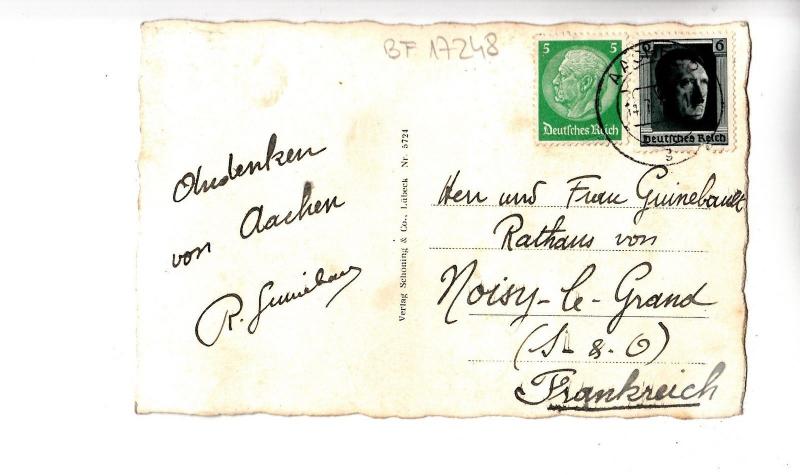 BF 17248
5 5
Deutsches Reich
6
Deutsches Reich
AACHEN
Andenken
von Aachen
R. Guinebault
Verlag Schöning & Co., Lübeck Nr. 5724
Herr und Frau Guinebault
Rathaus von
Noisy-le-Grand
(S & O)
Frankreich